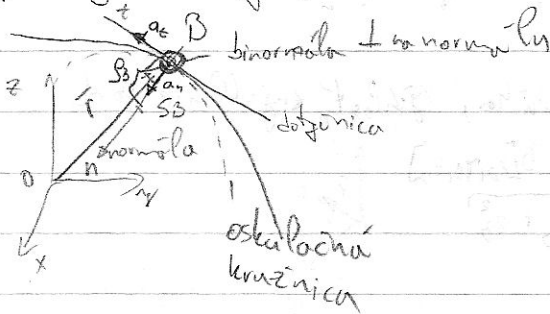 t
aₜ
B
binormála ⊥ na normálu
z
ρ₃
aₙ
r
S₃
dotyčnica
normála
n
0
y
x
oskulačná
kružnica